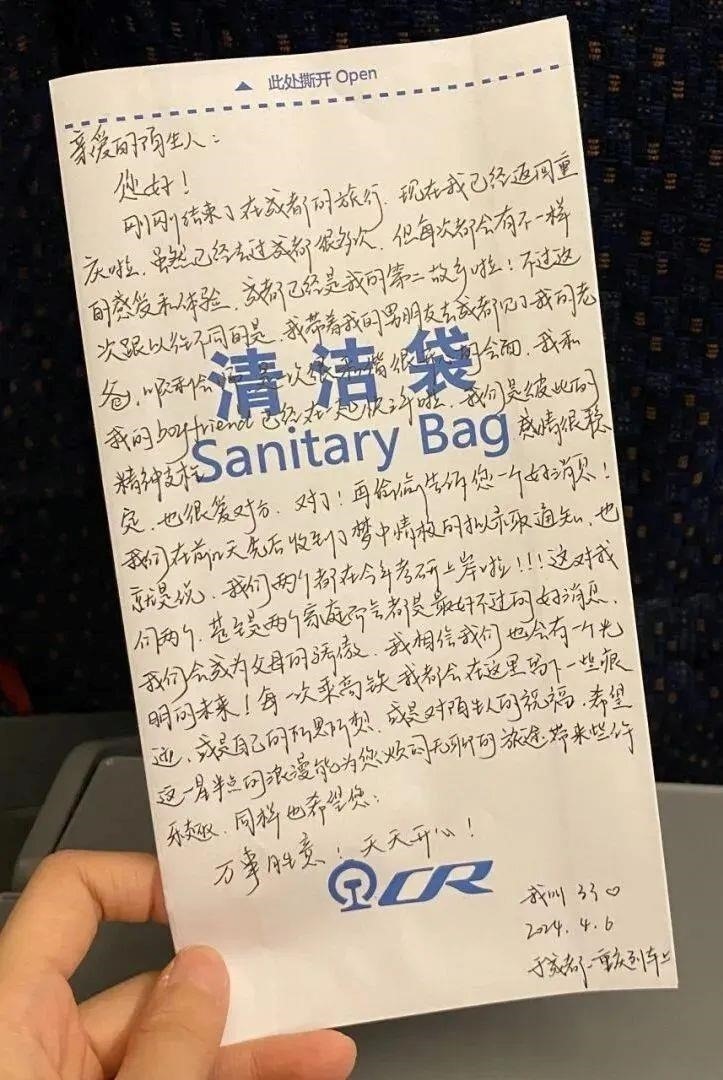 此处撕开 Open
亲爱的陌生人：
您好！
刚刚结束了在成都的旅行，现在我已经返回重
庆啦，虽然已经去过成都很多次，但每次都会有不一样
的感受和体验，成都已经是我的第二故乡啦！不过这
次跟以往不同的是，我带着我的男朋友去成都见了我的老
爸，顺利会面，是一次很和谐很的会面，我和
清洁袋
我的boyfriend已经在一起快三年啦，我们是彼此的
Sanitary Bag
精神支柱，感情很稳
定，也很爱对方，对了！再给您告诉您一个好消息！
我们在前几天先后收到了梦中情校的拟录取通知，也
就是说，我们两个都在今年考研上岸啦！！！这对我
们两个，甚至是两个家庭而言都是最好不过的好消息，
我们会成为父母的骄傲，我相信我们也会有一个光
明的未来！每一次乘高铁我都会在这里写下一些痕
迹，或是自己的所思所想，或是对陌生人的祝福，希望
这一星半点的浪漫能为您烦闷无聊的旅途带来些许
乐趣，同样也希望您：
万事胜意！天天开心！
CR
我叫
2024.4.6
于成都-重庆列车上